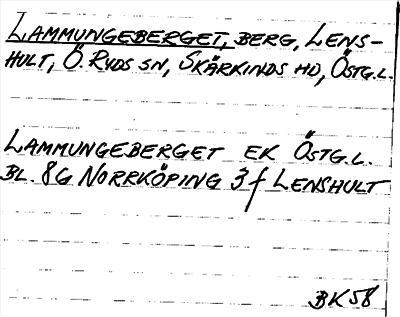 LAMMUNGEBERGET, BERG, LENS-
HULT, Ö. RYDS SN, SKÄRKINDS HD, ÖSTG.L.
LAMMUNGEBERGET EK ÖSTG.L.
BL. 8G NORRKÖPING 3f LENSHULT
BK 58